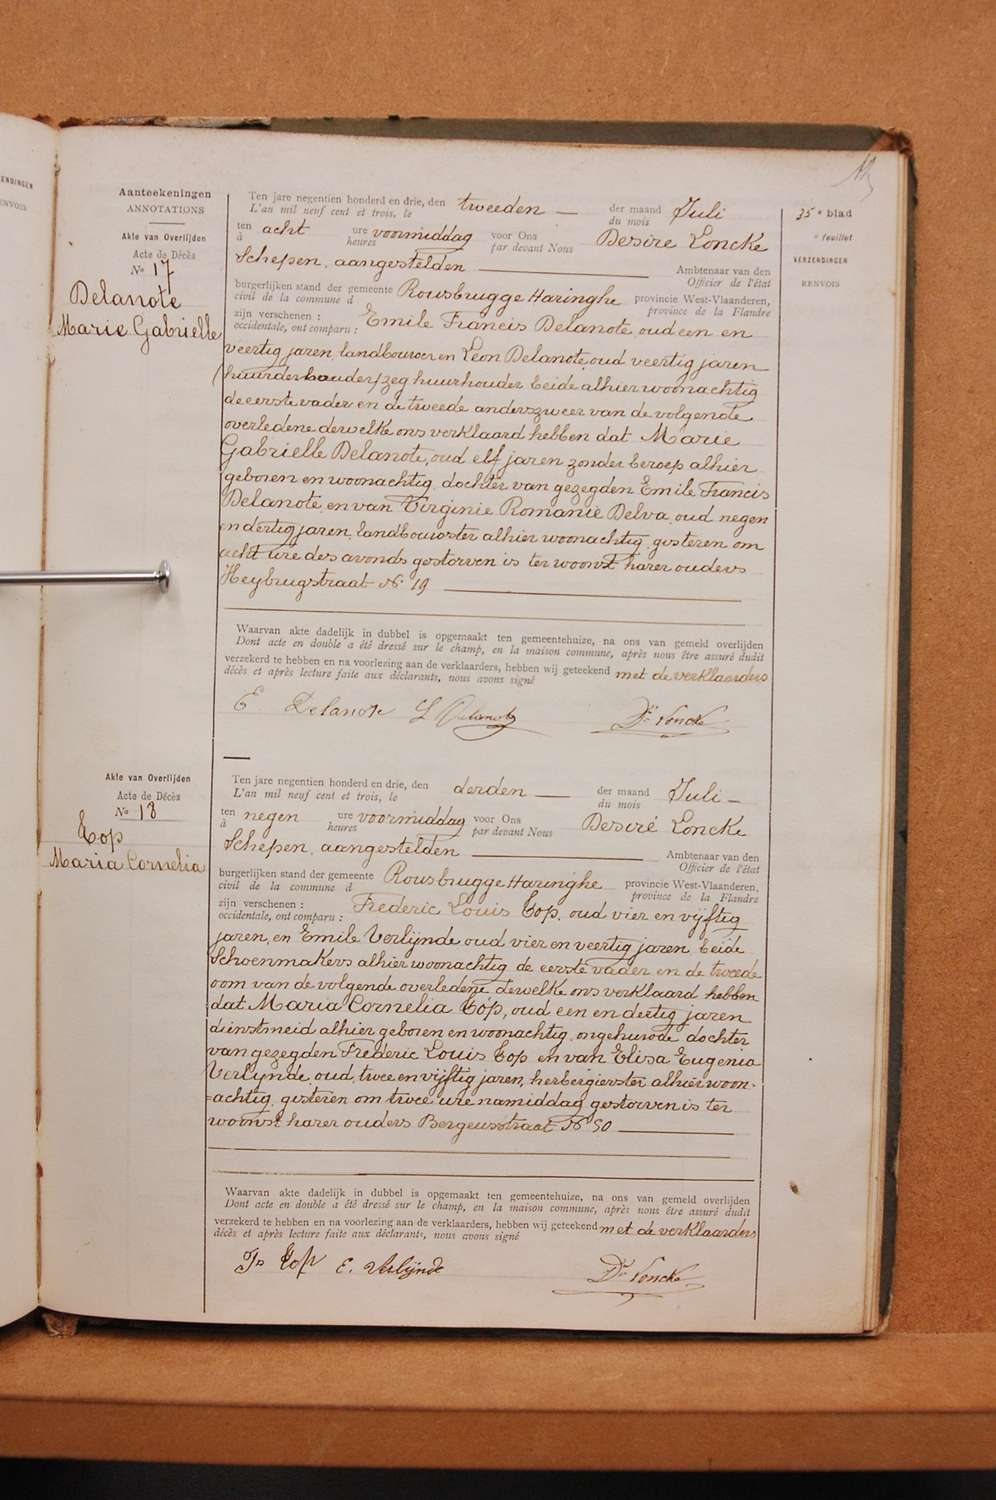 ENDINGEN
ENVOIS
Aanteekeningen
ANNOTATIONS
Akte van Overlijden
Acte de Décès
No 17
Delanote
Marie Gabrielle
Ten jare negentien honderd en drie, den tweeden — der maand Juli
L'an mil neuf cent et trois, le du mois
ten acht ure voormiddag voor Ons Desiré Loncke
à heures par devant Nous
Schepen, aangestelden — Ambtenaar van den
Officier de l'état
burgerlijken stand der gemeente Rousbrugge Haringhe provincie West-Vlaanderen,
civil de la commune d province de la Flandre
zijn verschenen : Emile Francis Delanote, oud een en
occidentale, ont comparu :
veertig jaren, landbouwer en Leon Delanote, oud veertig jaren
(huurderhouder) zeg huurhouder beide alhier woonachtig
de eerste vader en de tweede anderszweer van de volgende
overledene dewelke ons verklaard hebben dat Marie
Gabrielle Delanote, oud elf jaren zonder beroep alhier
geboren en woonachtig, dochter van gezegden Emile Francis
Delanote, en van Virginie Romanie Delva, oud negen
en dertig jaren, landbouwster alhier woonachtig, gisteren om
acht ure des avonds gestorven is ter woonst harer ouders
Heybrugstraat No 19 —
Waarvan akte dadelijk in dubbel is opgemaakt ten gemeentehuize, na ons van gemeld overlijden
Dont acte en double a été dressé sur le champ, en la maison commune, après nous être assuré dudit
verzekerd te hebben en na voorlezing aan de verklaarders, hebben wij geteekend met de verklaarders
décès et après lecture faite aux déclarants, nous avons signé
E Delanote L Delanote Dr Loncke
Akte van Overlijden
Acte de Décès
No 18
Top
Maria Cornelia
Ten jare negentien honderd en drie, den derden — der maand Juli —
L'an mil neuf cent et trois, le du mois
ten negen ure voormiddag voor Ons Desiré Loncke
à heures par devant Nous
Schepen, aangestelden — Ambtenaar van den
Officier de l'état
burgerlijken stand der gemeente Rousbrugge Haringhe provincie West-Vlaanderen,
civil de la commune d province de la Flandre
zijn verschenen : Frederic Louis Top, oud vier en vijftig
occidentale, ont comparu :
jaren, en Emile Verlijnde oud vier en veertig jaren beide
Schoenmakers alhier woonachtig de eerste vader en de tweede
oom van de volgende overledene dewelke ons verklaard hebben
dat Maria Cornelia Top, oud een en dertig jaren
dienstmeid alhier geboren en woonachtig, ongehuwde dochter
van gezegden Frederic Louis Top en van Elisa Eugenia
Verlijnde, oud, twee en vijftig jaren, herbergierster alhier woon-
=achtig, gisteren om twee ure namiddag gestorven is ter
woonst harer ouders Bergenstraat No 50 —
Waarvan akte dadelijk in dubbel is opgemaakt ten gemeentehuize, na ons van gemeld overlijden
Dont acte en double a été dressé sur le champ, en la maison commune, après nous être assuré dudit
verzekerd te hebben en na voorlezing aan de verklaarders, hebben wij geteekend met de verklaarders
décès et après lecture faite aux déclarants, nous avons signé
Top E. Verlijnde Dr Loncke
35e blad
e feuillet
VERZENDINGEN
RENVOIS